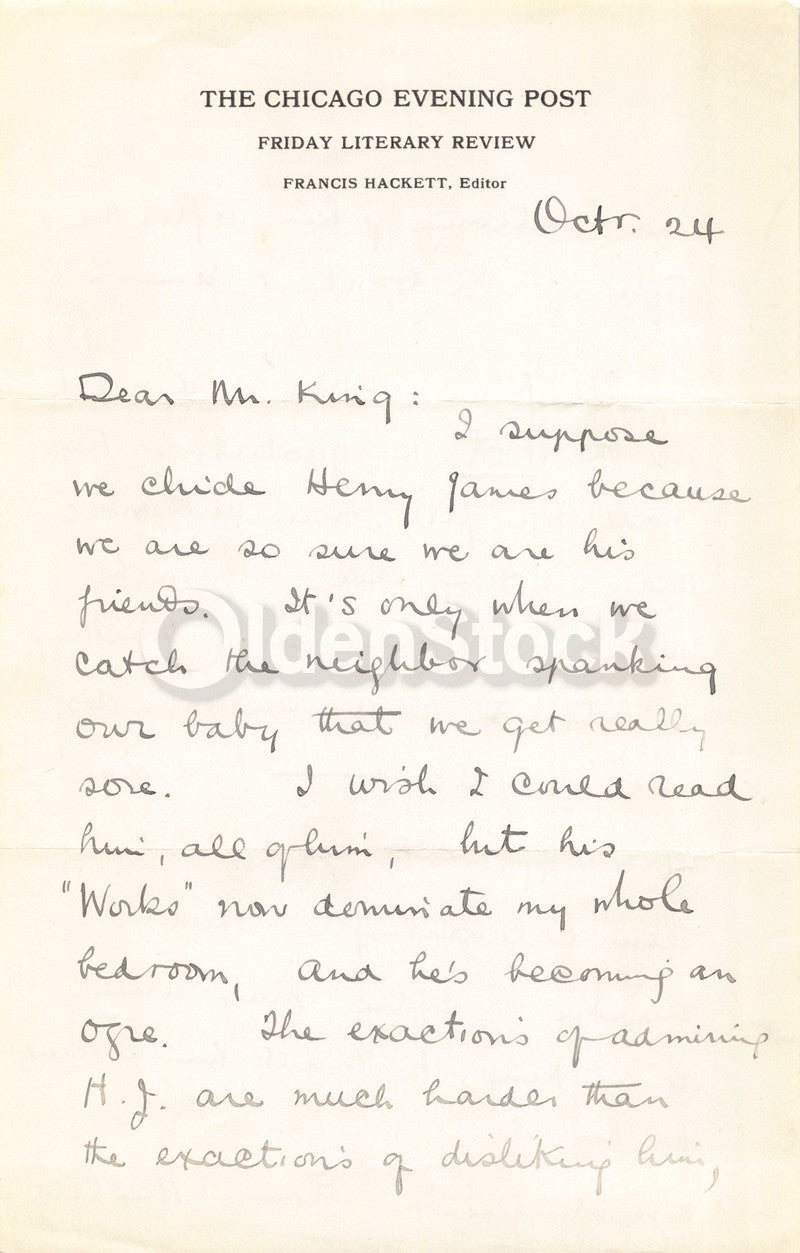 THE CHICAGO EVENING POST
FRIDAY LITERARY REVIEW
FRANCIS HACKETT, Editor
Octr. 24
Dear Mr. King:
I suppose
we chide Henry James because
we are so sure we are his
friends. It's only when we
catch the neighbor spanking
our baby that we get really
sore. I wish I could read
him, all of him, but his
"Works" now dominate my whole
bedroom, and he's becoming an
ogre. The exactions of admiring
H. J. are much harder than
the exactions of disliking him,
OldenStock